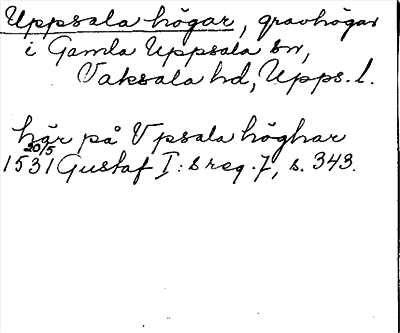 Uppsala högar, gravhögar
i Gamla Uppsala sn,
Vaksala hd, Upps. l.
här på Vpsala höghar
20/5
1531 Gustaf I:s reg. 7, s. 343.